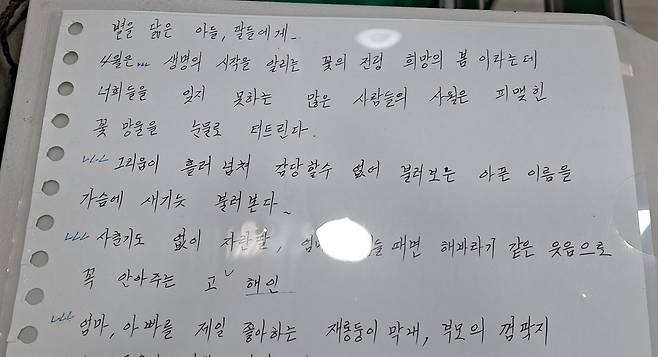 별을 닮은 아들, 딸들에게-
4월은... 생명의 시작을 알리는 꽃의 전령 희망의 봄 이라는데
너희들을 잊지 못하는 많은 사람들의 사월은 피맺힌
꽃 망울을 눈물로 터트린다.
그리움이 흘러 넘쳐 감당할수 없어 불러보는 아픈 이름을
가슴에 새기듯 불러본다~
사춘기도 없이 자란 때면 해바라기 같은 웃음으로
꼭 안아주는 고 해인
엄마, 아빠를 제일 좋아하는 재롱둥이 막내, 부모의 껌딱지